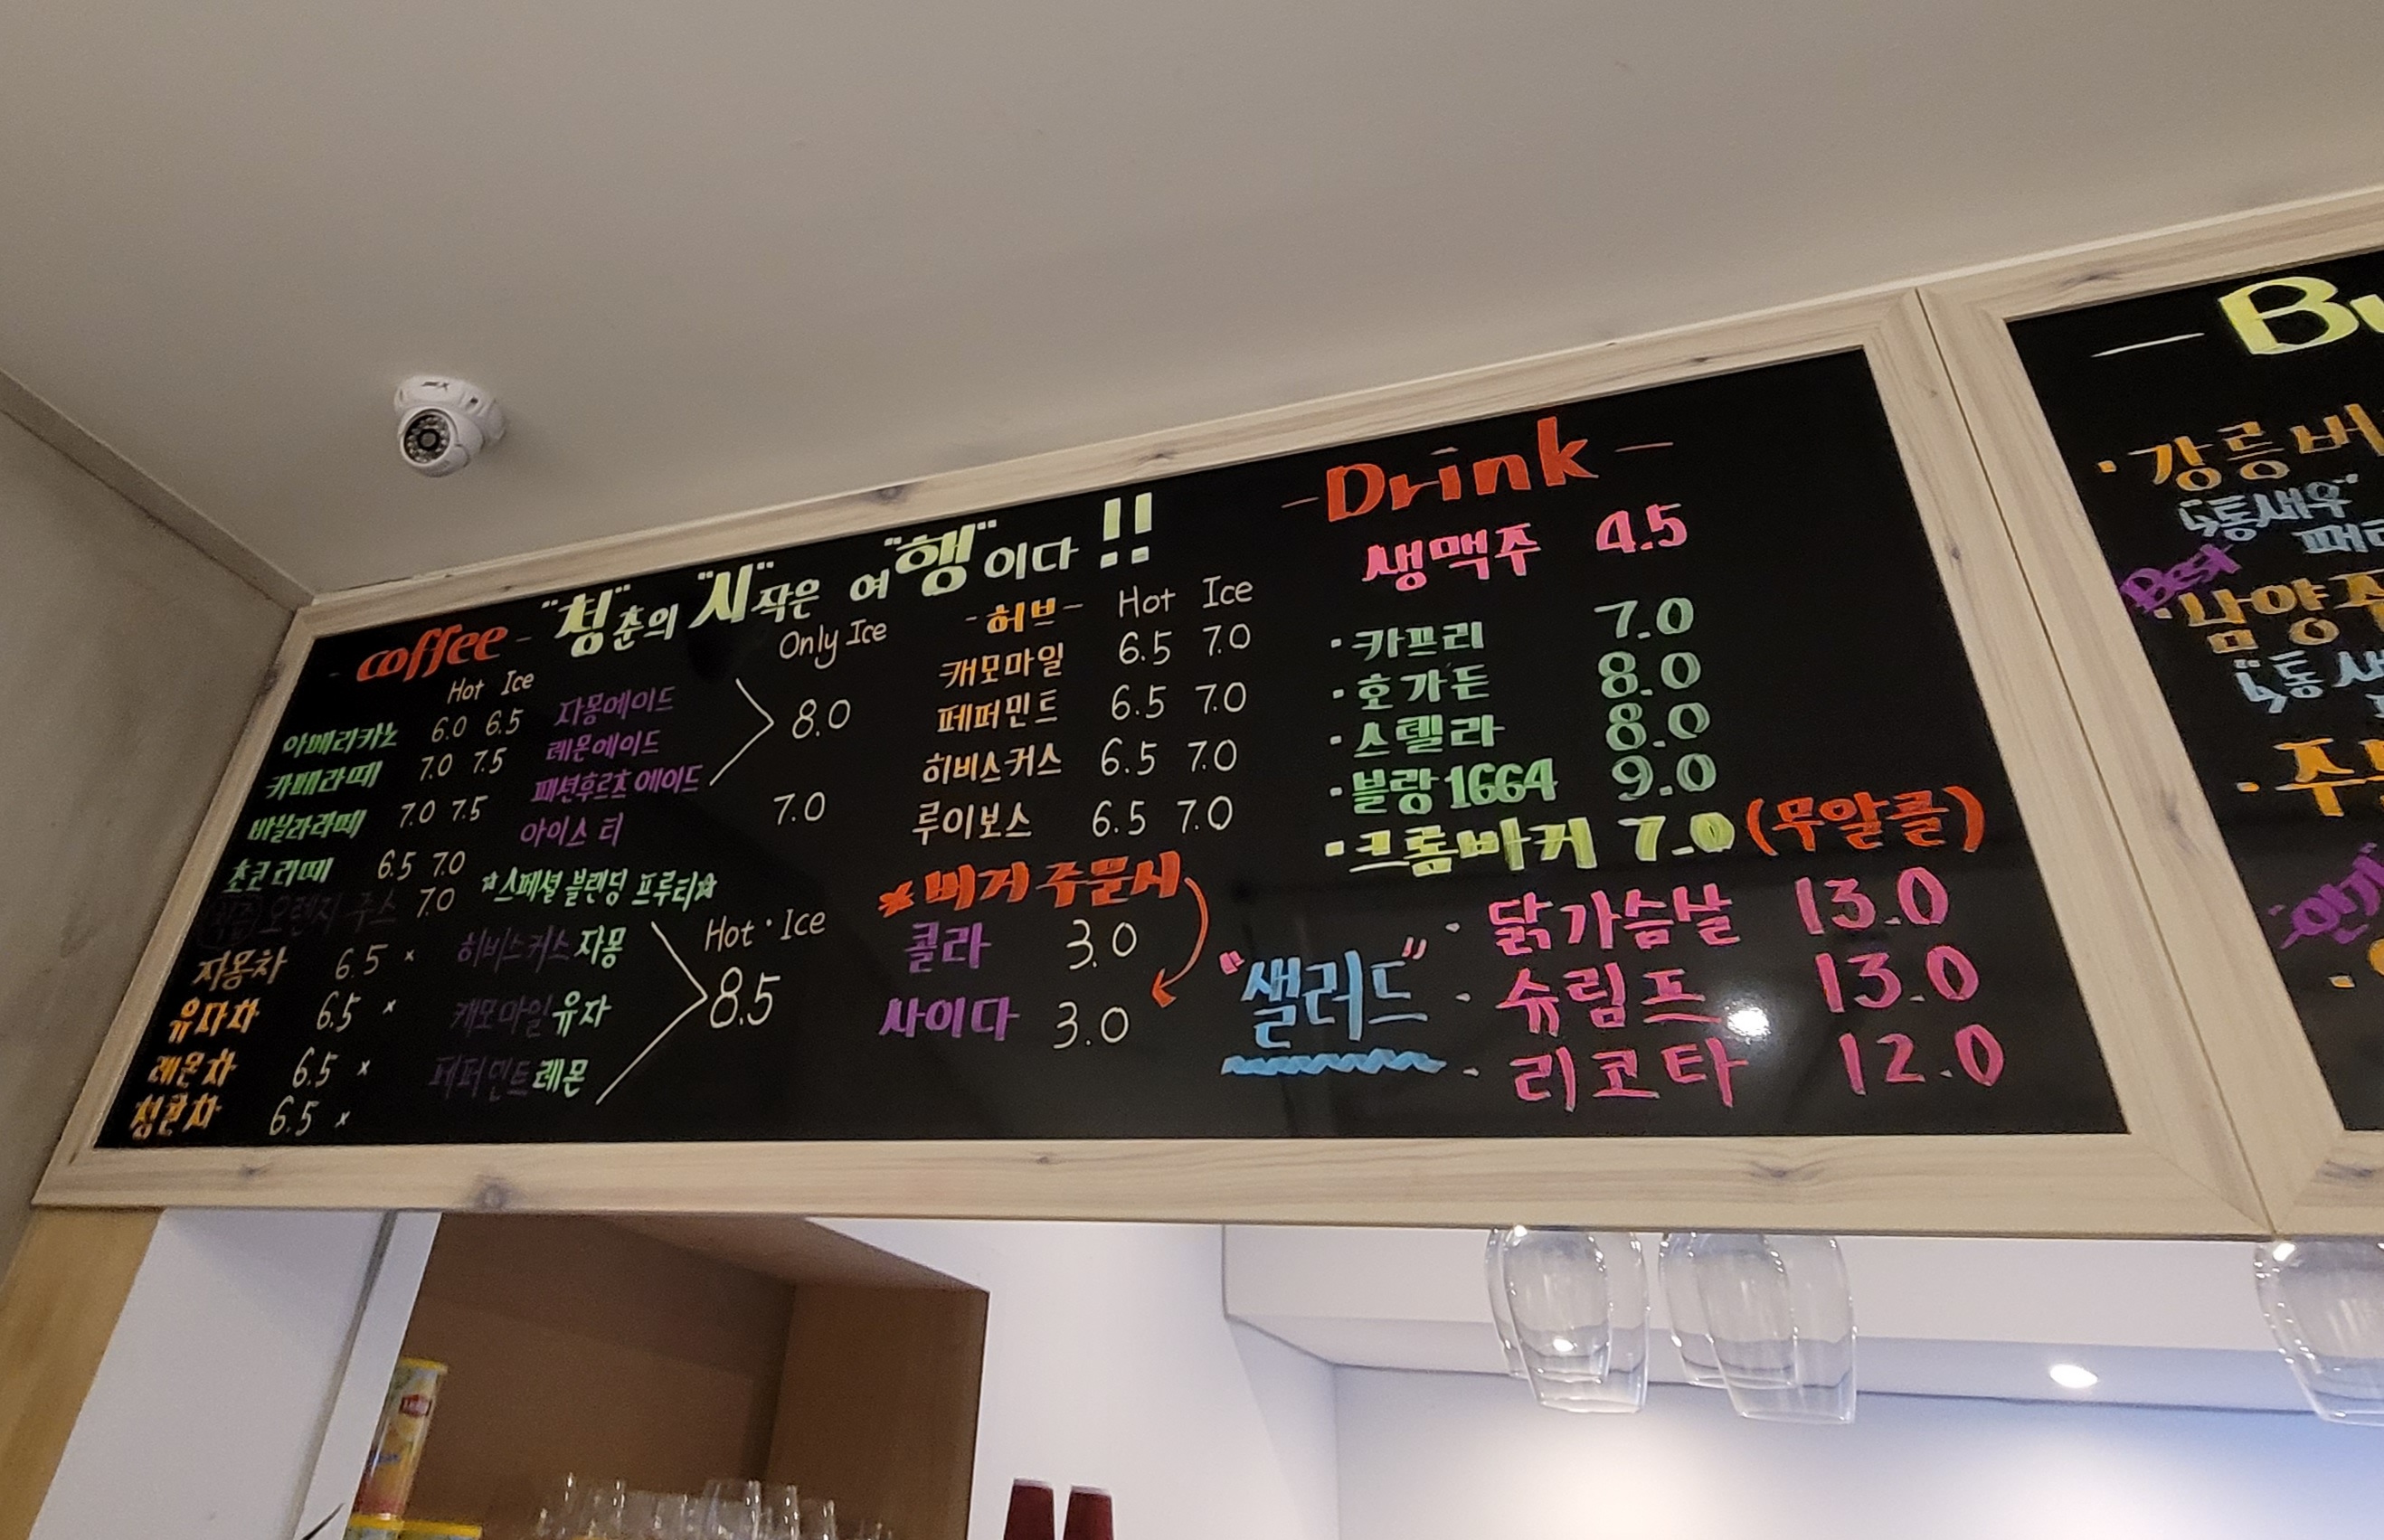 "청"춘의 "시"작은 여"행"이다 !!
- coffee -
Hot Ice
아메리카노 6.0 6.5
카페라떼 7.0 7.5
바닐라라떼 7.0 7.5
초코라떼 6.5 7.0
오렌지 주스 7.0
자몽차 6.5 ×
유자차 6.5 ×
레몬차 6.5 ×
청귤차 6.5 ×
Only Ice
자몽에이드
레몬에이드
패션후르츠 에이드
8.0
아이스 티 7.0
☆스페셜 블렌딩 프루티☆
Hot · Ice
히비스커스 자몽
캐모마일 유자
페퍼민트 레몬
8.5
- 허브 - Hot Ice
캐모마일 6.5 7.0
페퍼민트 6.5 7.0
히비스커스 6.5 7.0
루이보스 6.5 7.0
* 버거 주문시
콜라 3.0
사이다 3.0
- Drink -
생맥주 4.5
· 카프리 7.0
· 호가든 8.0
· 스텔라 8.0
· 블랑1664 9.0
· 크롬바커 7.0 (무알콜)
"샐러드"
· 닭가슴살 13.0
· 슈림프 13.0
· 리코타 12.0
- Bu
· 강릉버
↳통새우
패티
Best
· 남양주
↳통새